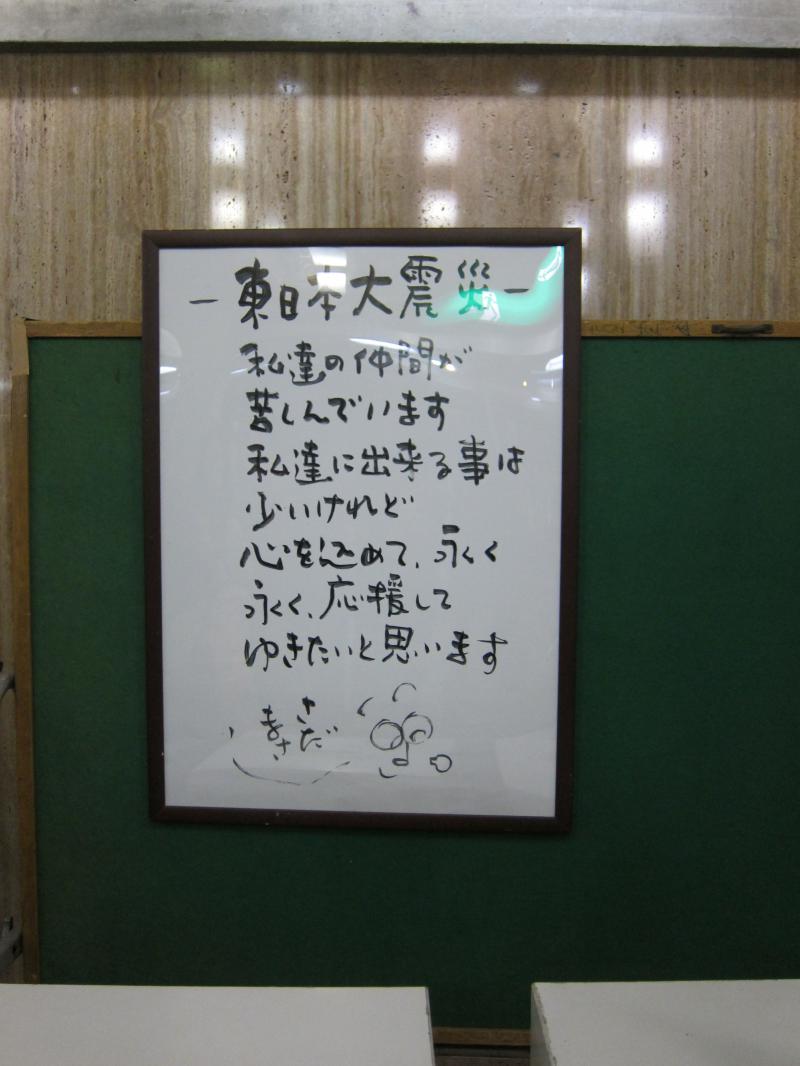 －東日本大震災－
私達の仲間が
苦しんでいます
私達に出来る事は
少いけれど
心を込めて、永く
永く、応援して
ゆきたいと思います
さだ
まさし